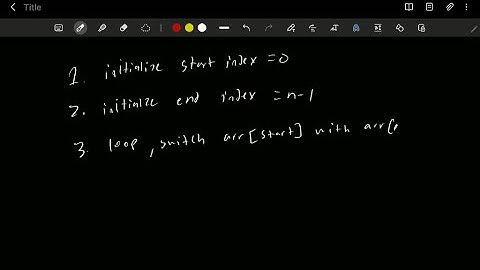 Title
1. initialize start index = 0
2. initialize end index = n-1
3. loop, switch arr[start] with arr[e